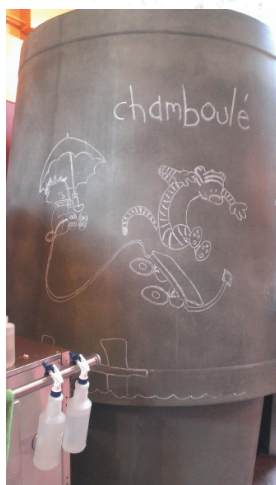 chamboulé